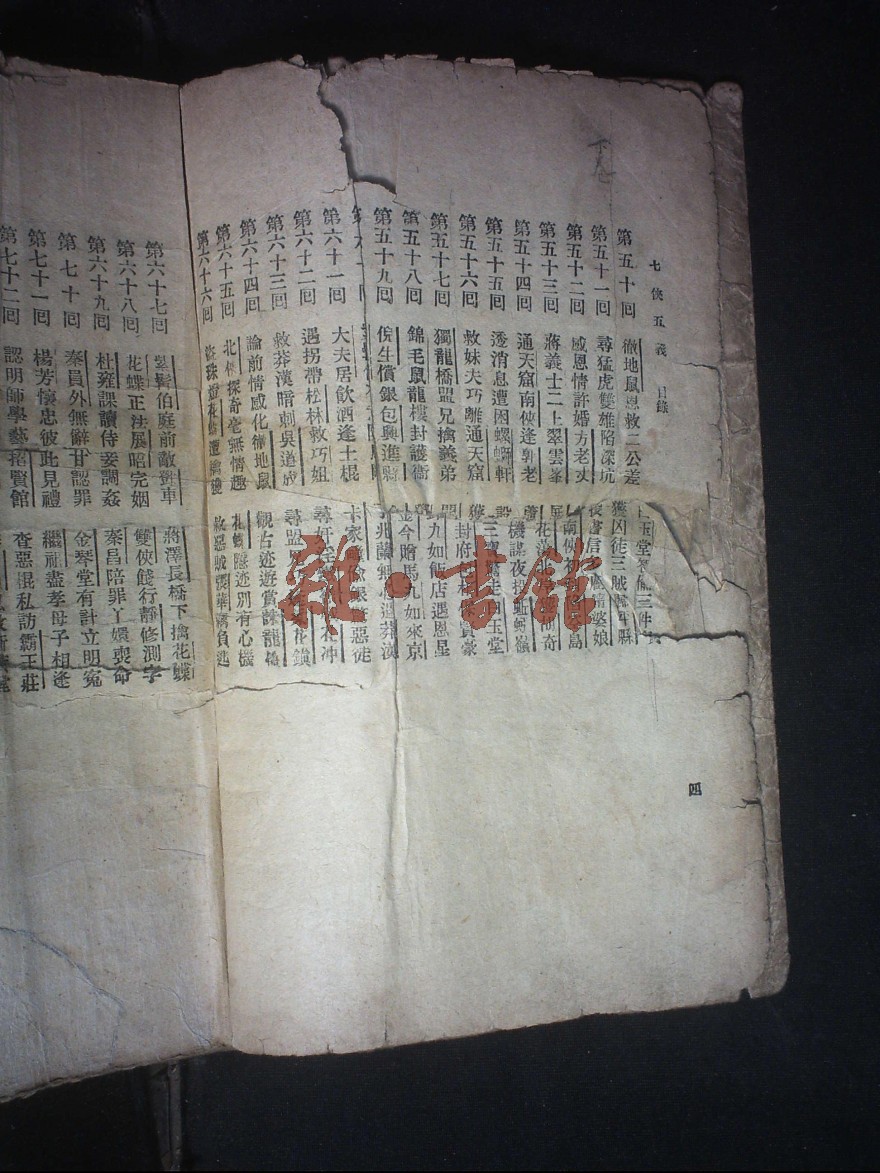 七俠五義 目錄
第五十回 徹地鼠恩救二公差 白玉堂智偷三件寶
第五十一回 尋猛虎雙雄陷深坑 獲凶徒三賊歸平縣
第五十二回 感恩情許婚方老丈
第五十三回 蔣義士二上翠雲峯
第五十四回 通天窟南俠逢郭老
第五十五回 透消息遭困螺螄軒 機謀夜投蚯蚓嶺
第五十六回 救妹夫巧離通天窟 三寶驚走白玉堂
第五十七回 獨龍橋盟兄擒義弟
第五十八回 錦毛鼠龍樓封護衞 九如飯店遇恩星
第五十九回 倪生償銀包興進縣 金令贈馬九如來京
第六十一回 大夫居飲酒逢土棍 卞家
第六十二回 遇拐帶松林救巧姐
第六十三回 救莽漢暗刺吳道成 尋盟
第六十四回 論前情感化徹地鼠 觀古迹遊賞誅龍橋
第六十五回 北俠探奇毫無情趣 花蝶隱迹別有心機
第六十六回 盜珠燈花蝶遭擒獲 救惡賊張華竊負逃
第六十七回 紫髯伯庭前敵鄧車 蔣澤長橋下擒花蝶
第六十八回 花蝶正法展昭完姻 雙俠餞行靜修測字
第六十九回 杜雍課讀侍妾調姦 秦昌陪罪丫嬛喪命
第七十回 秦員外無辭甘認罪 金琴堂有計立明冤
第七十一回 楊芳懷忠彼此見禮 繼祖盡孝母子相逢
第七十二回 認明師學藝招賢館 查惡棍私訪霸王莊
四
下卷
雜·書館